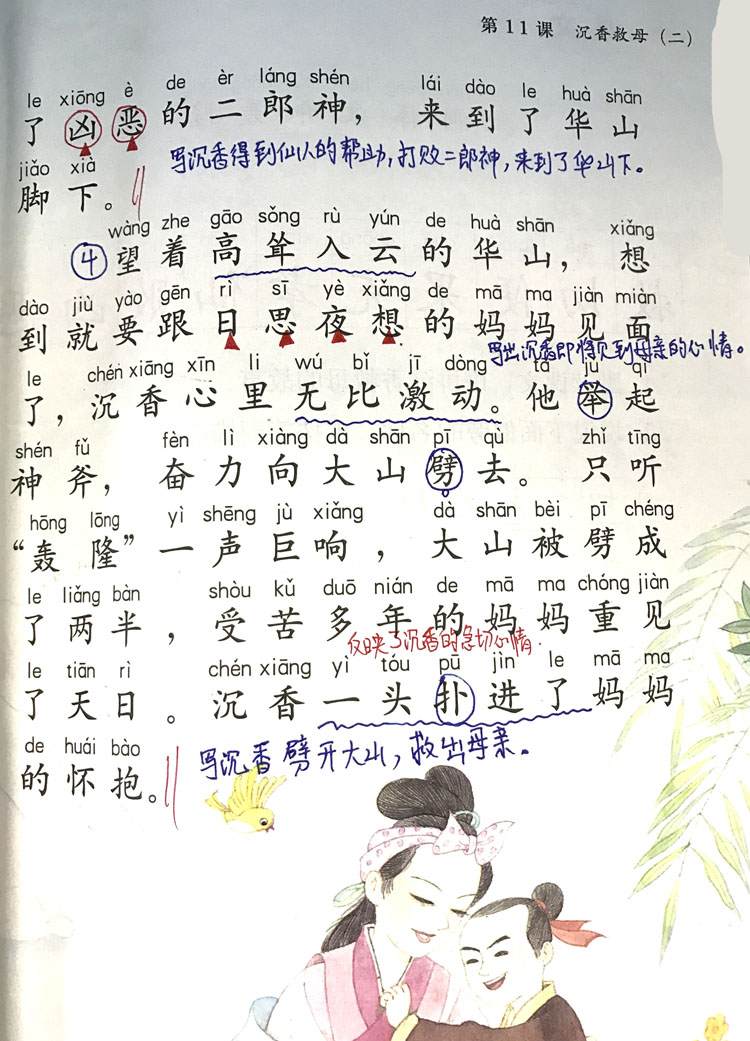 第11课 沉香救母（二）
le xiōng è de èr láng shén lái dào le huà shān
了凶恶的二郎神，来到了华山
写沉香得到仙人的帮助，打败二郎神，来到了华山下。
jiǎo xià
脚下。
wàng zhe gāo sǒng rù yún de huà shān xiǎng
④望着高耸入云的华山，想
dào jiù yào gēn rì sī yè xiǎng de mā ma jiàn miàn
到就要跟日思夜想的妈妈见面
写出沉香即将见到母亲的心情。
le chén xiāng xīn li wú bǐ jī dòng tā jǔ qǐ
了，沉香心里无比激动。他举起
shén fǔ fèn lì xiàng dà shān pī qù zhǐ tīng
神斧，奋力向大山劈去。只听
hōng lōng yì shēng jù xiǎng dà shān bèi pī chéng
“轰隆”一声巨响，大山被劈成
le liǎng bàn shòu kǔ duō nián de mā ma chóng jiàn
了两半，受苦多年的妈妈重见
反映了沉香的急切心情
le tiān rì chén xiāng yì tóu pū jìn le mā ma
了天日。沉香一头扑进了妈妈
de huái bào
的怀抱。
写沉香劈开大山，救出母亲。